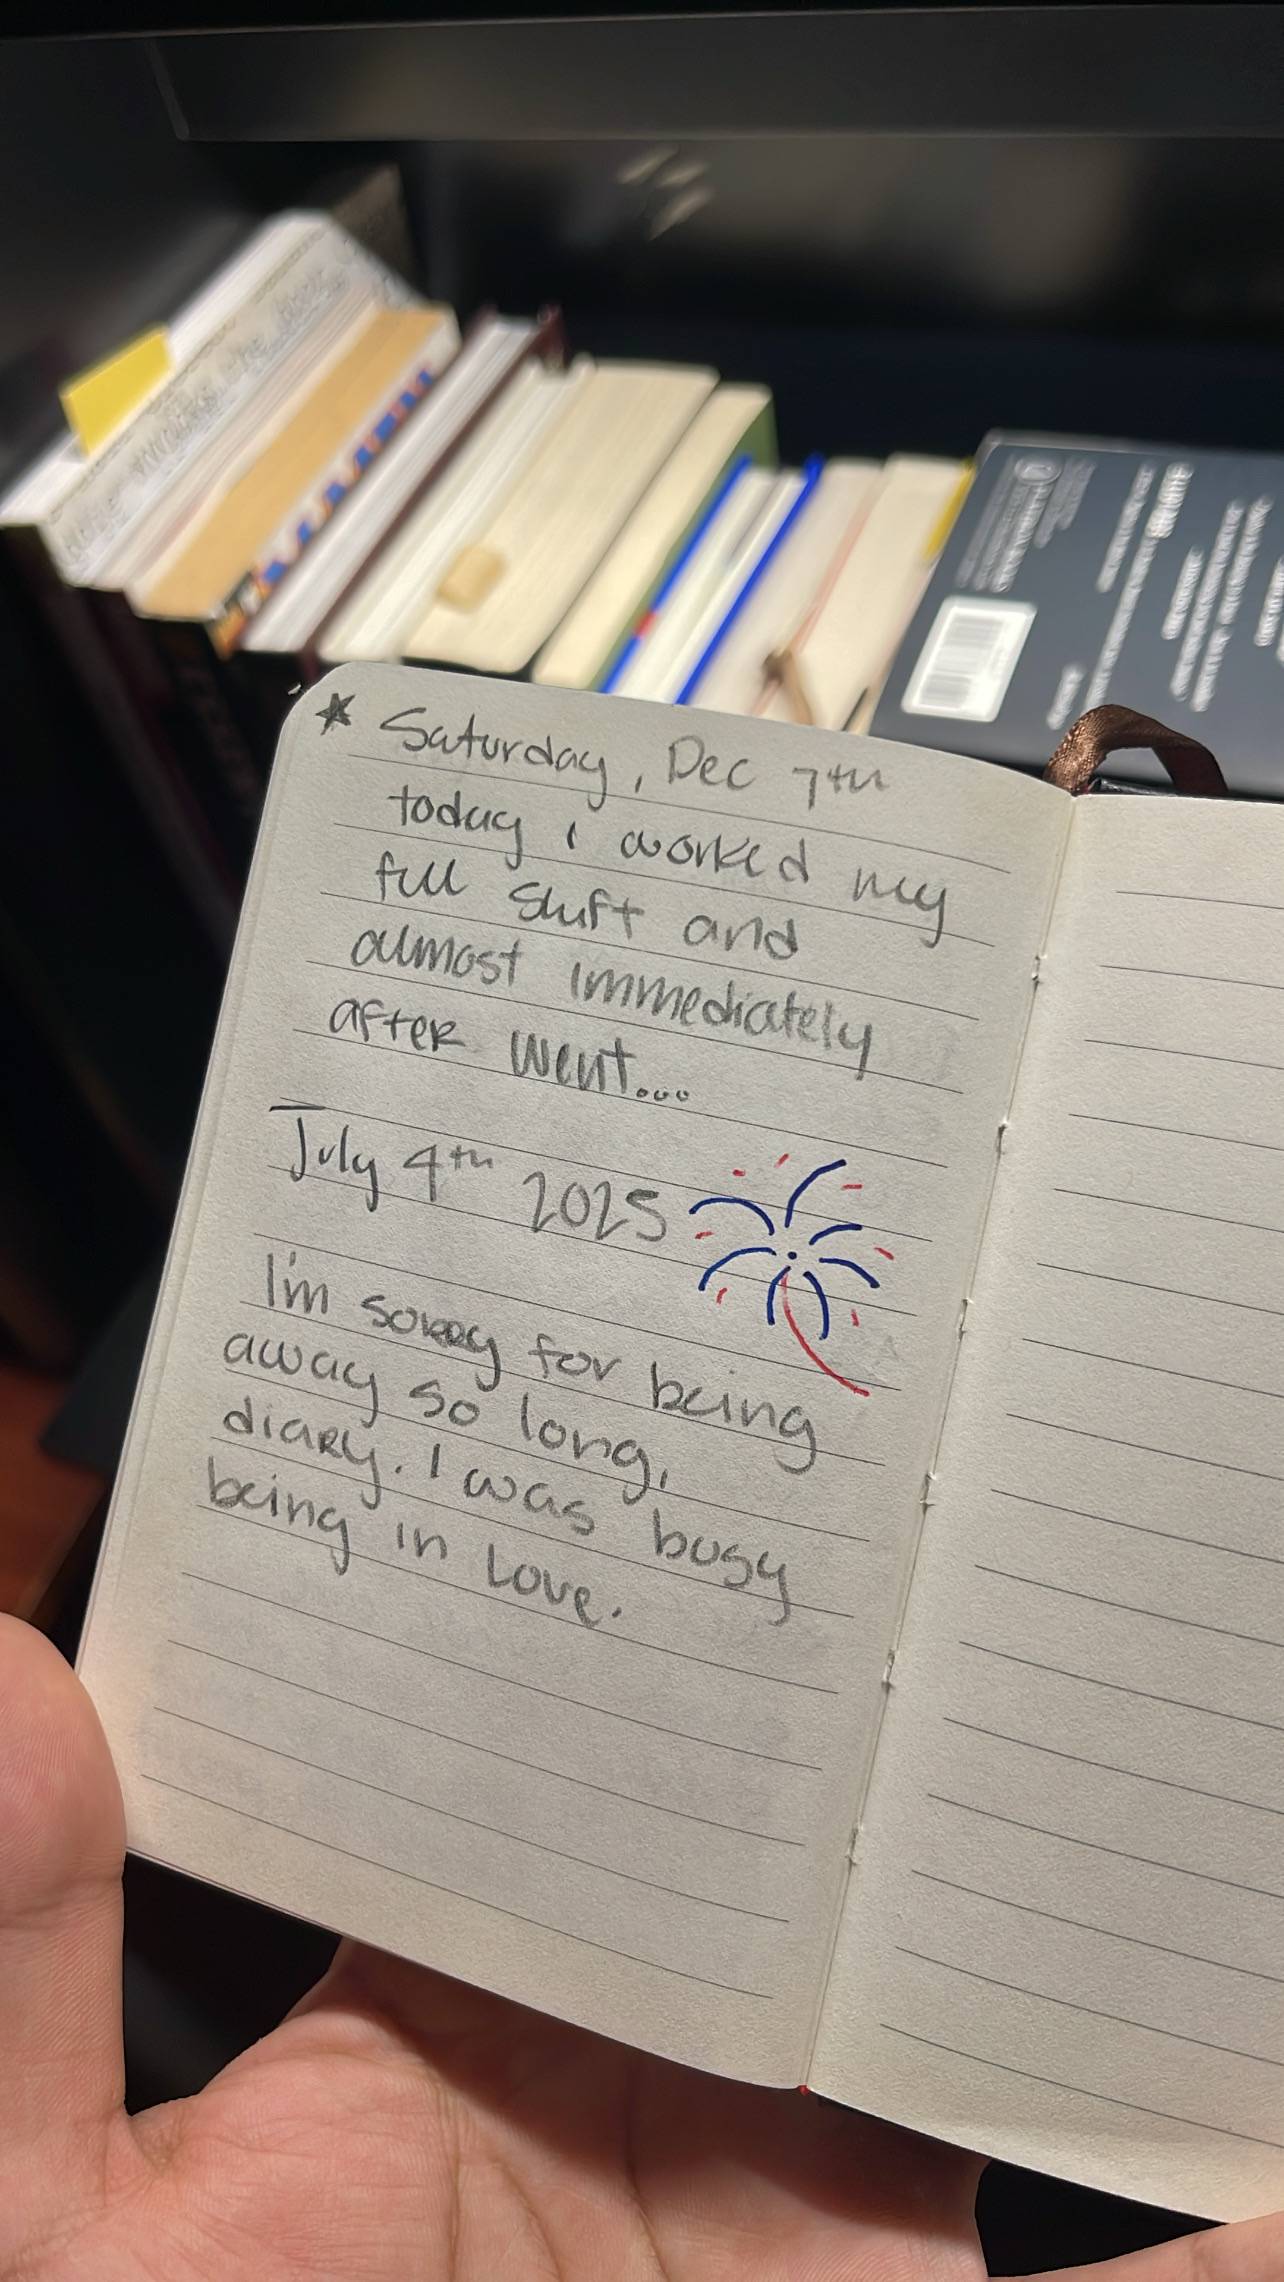 ★ Saturday, Dec 7th
today i worked my
full shift and
almost immediately
after went...
July 4th 2025
I'm sorry for being
away so long,
diary. I was busy
being in love.